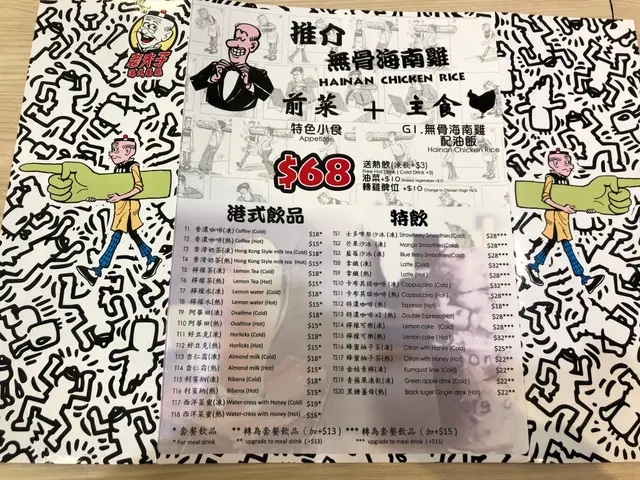 老夫子
推介
無骨海南雞
HAINAN CHICKEN RICE
前菜 + 主食
特色小食
Appetizer
G1.無骨海南雞
配油飯
Hainan Chicken Rice
$68
送熱飲(凍飲+$3)
Free Hot Drink / Cold Drink +3)
油菜+$10
轉雞髀位 +$10 Change to Chicken Thigh +$10
港式飲品
T1 香濃咖啡(凍) Coffee (Cold) $18*
T2 香濃咖啡(熱) Coffee (Hot) $15*
T3 香滑奶茶(凍) Hong Kong Style milk tea (Cold) $18*
T4 香滑奶茶(熱) Hong Kong Style milk tea (Hot) $15*
T5 檸檬茶(凍) Lemon Tea (Cold) $18*
T6 檸檬茶(熱) Lemon Tea (Hot) $15*
T7 檸檬水(凍) Lemon water (Cold) $18*
T8 檸檬水(熱) Lemon water (Hot) $15*
T9 阿華田(凍) Ovaltine (Cold) $18*
T10 阿華田(熱) Ovaltine (Hot) $15*
T11 好立克(凍) Horlicks (Cold) $18*
T12 好立克(熱) Horlicks (Hot) $15*
T13 杏仁霜(凍) Almond milk (Cold) $18*
T14 杏仁霜(熱) Almond milk (Hot) $15*
T15 利賓納(凍) Ribena (Cold) $18*
T16 利賓納(熱) Ribena (Hot) $15*
T17 西洋菜蜜(凍) Water-cress with Honey (Cold) $19*
T18 西洋菜蜜(熱) Water-cress with Honey (Hot) $16*
特飲
TS1 士多啤梨沙冰(凍) Strawberry Smoothies(Cold) $28***
TS2 芒果沙冰(凍) Mango Smoothies(Cold) $28***
TS3 藍莓沙冰(凍) Blue Berry Smoothies(Cold) $28***
TS8 拿鐵(凍) Latte (Cold) $32***
TS9 拿鐵(熱) Latte (Hot) $28***
TS10 卡布其諾咖啡(凍) Cappuccino (Cold) $32***
TS11 卡布其諾咖啡(熱) Cappuccino (Hot) $28***
TS12 特濃咖啡(熱) Espresso (Hot)
TS13 特濃咖啡x2(熱) Double Espresso(Hot) $28***
TS14 檸檬可熱(凍) Lemon coke (Cold)
TS15 檸檬可樂(熱) Lemon coke (Hot)
TS16 蜂蜜柚子茶(凍) Citron with Honey (Cold)
TS17 蜂蜜柚子茶(熱) Citron with Honey (Hot) $22**
TS18 金桔青檸(凍) Kumquat lime (Cold) $22**
TS19 青蘋果凍飲(凍) Green apple drink (Cold) $22**
TS20 黑糖薑母(熱) Black sugar Ginger drink (Hot) $22**
* 套餐飲品 ** 轉為套餐飲品(加+$13) *** 轉為套餐飲品(加+$15)
* For meal drink ** upgrade to meal drink (+$13) *** upgrade to meal drink (+$15)